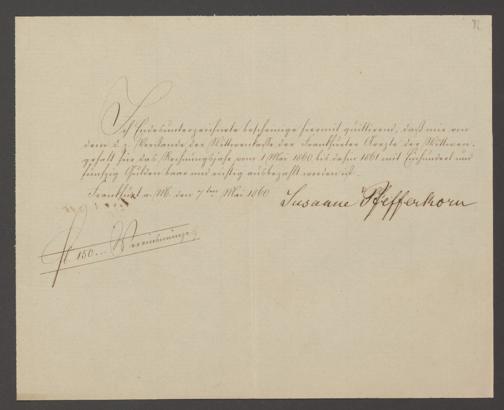 Ich Endesunterzeichnete bescheinige hiermit quittirend, daß mir von
dem z. Z. Vorstande der Wittwenkasse der Frankfurter Aerzte der Wittwen-
gehalt für das Rechnungsjahr vom 1 Mai 1860 bis dahin 1861 mit Einhundert und
fünfzig Gulden baar und richtig ausbezahlt worden ist.
Frankfurt a. M. den 7ten Mai 1860
Susanne Pfefferkorn
fl 150.- Vereinsmünze